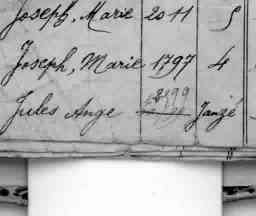 Joseph, Marie 2011 5
Joseph, Marie 1797 4
Jules Ange 2199 Janzé